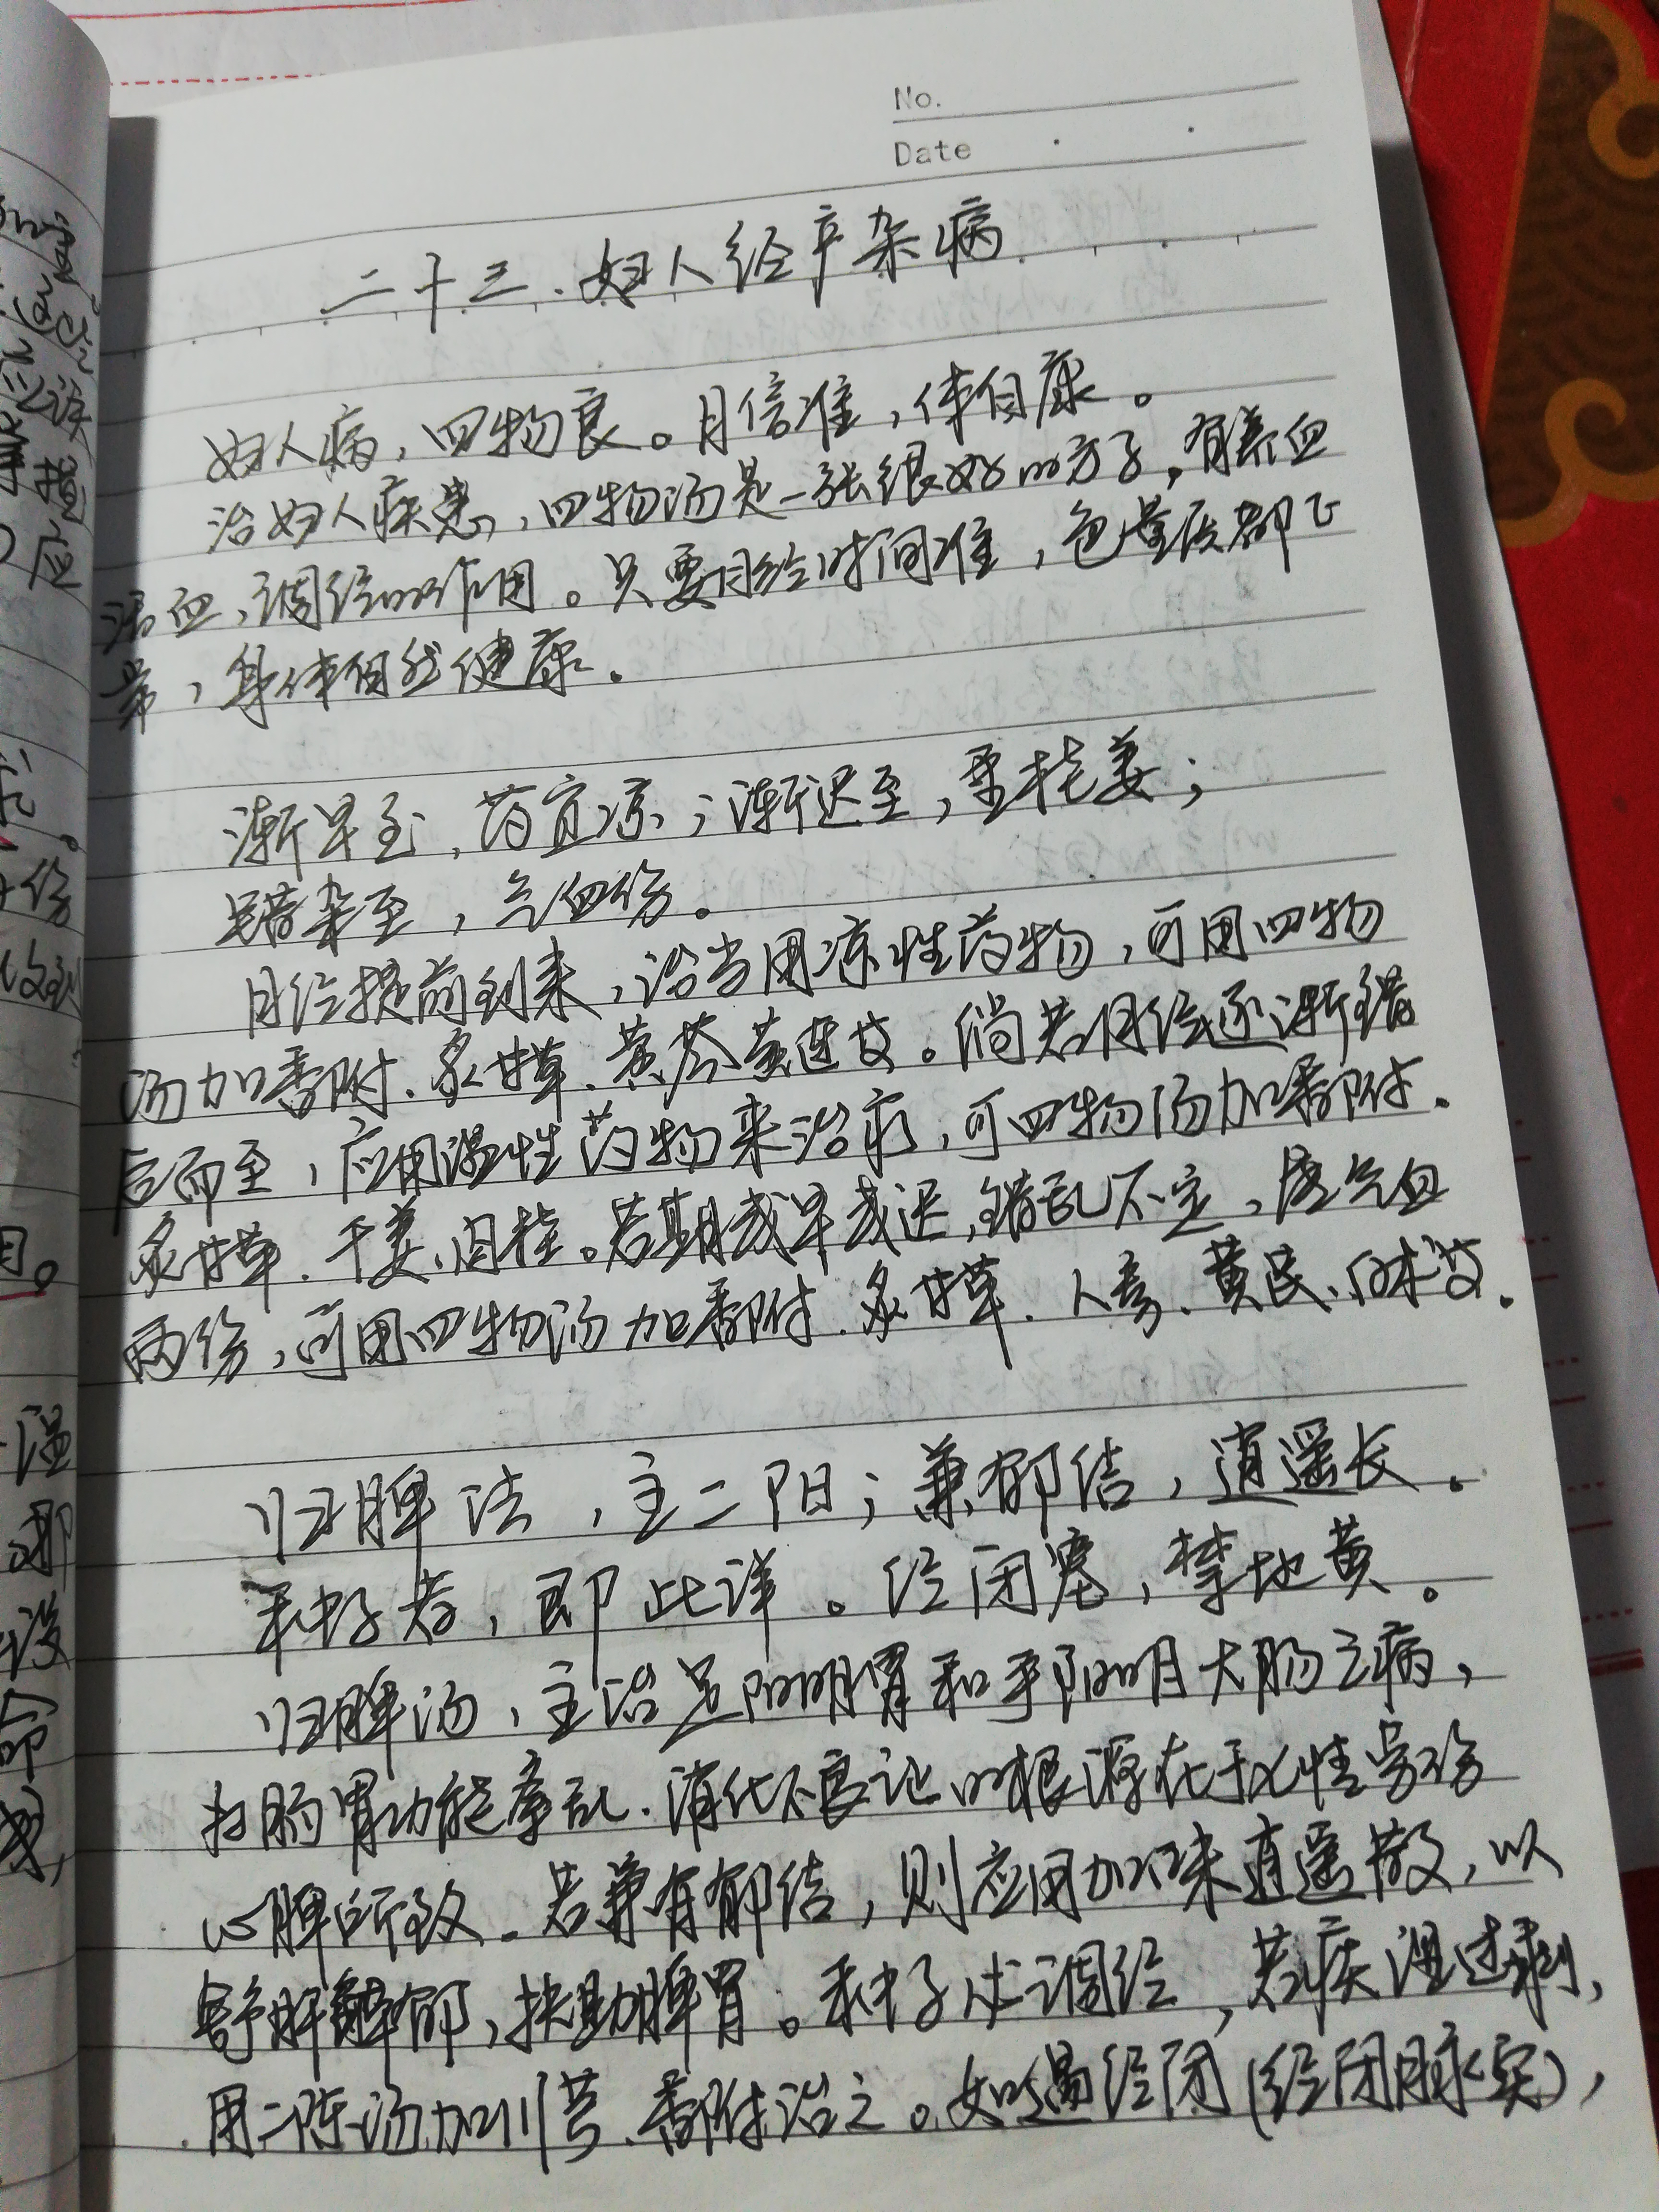 No.
Date
二十三.妇人经产杂病
妇人病,四物良。月信准,体自康。
治妇人疾患,四物汤是一张很好的方子,有养血
活血,调经的作用。只要月经时间准,色量质都正
常,身体自然健康.
渐早至,药宜凉;渐迟至,重桂姜;
错杂至,气血伤。
月经提前到来,治当用凉性药物,可用四物
汤加香附.炙甘草.黄芩黄连艾。倘若月经逐渐错
后而至,应用温性药物来治疗,可四物汤加香附.
炙甘草.干姜、肉桂。若期或早或迟,错乱不定,属气血
两伤,可用四物汤加香附.炙甘草.人参.黄芪、白术艾.
归脾法,主二阳;兼郁结,逍遥长.
种子者,即此详。经闭塞,禁地黄。
归脾汤,主治足阳明胃和手阳明大肠之病,
扫肠胃功能牵乱.消化不良证的根源在于火性劳伤
心脾所致.若兼有郁结,则应用加味逍遥散,以
舒肝解郁,扶助脾胃。种子求调经,若痰湿过剩,
用二陈汤加川芎.香附治之。如遇经闭(经闭脉实),